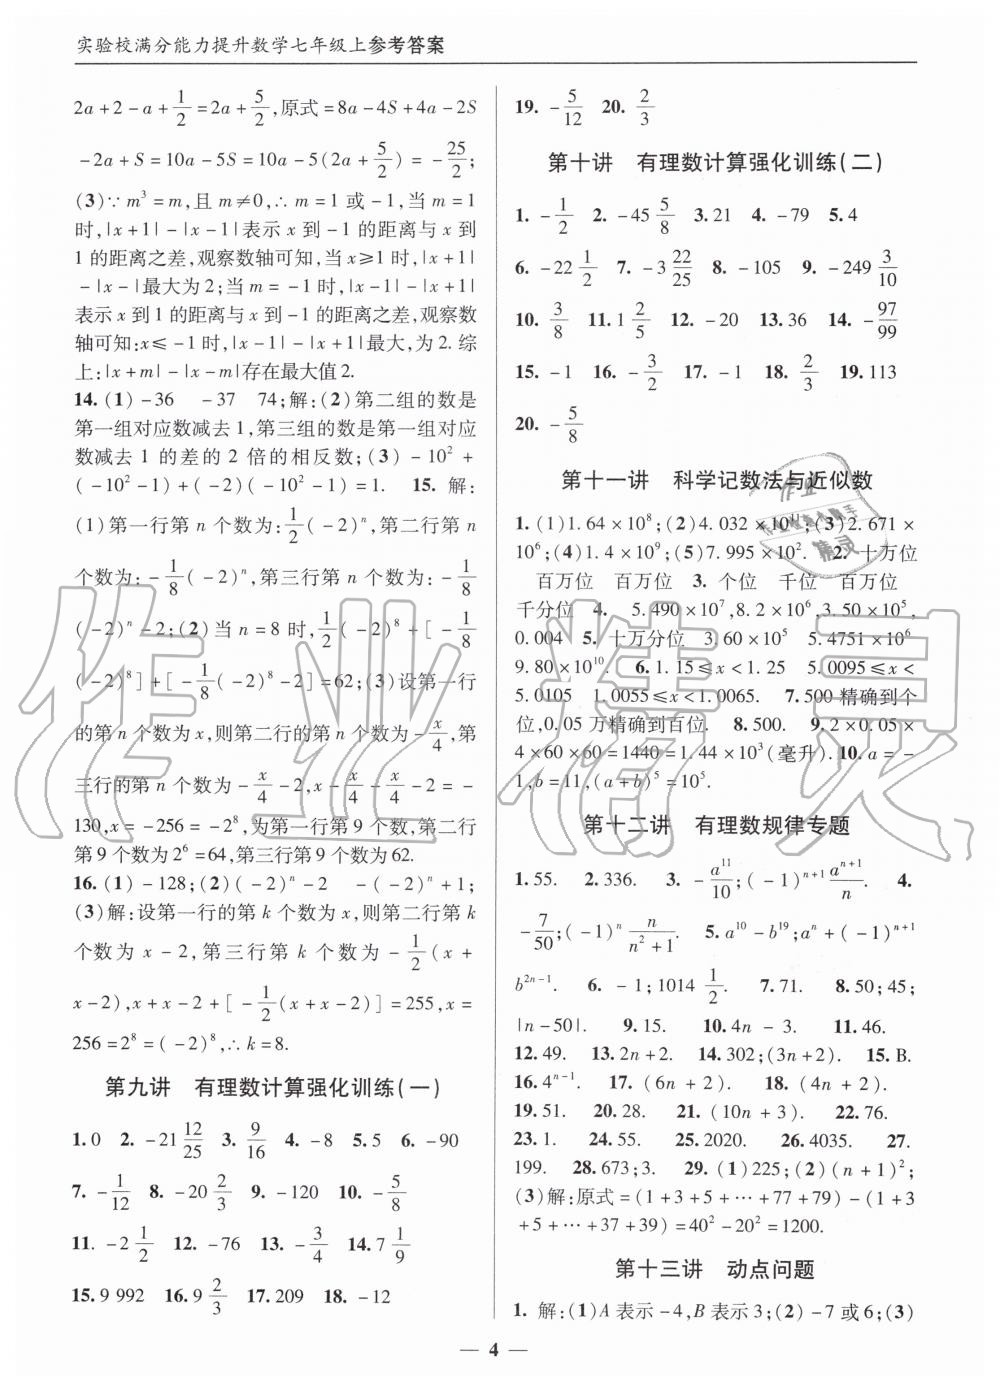 实验校满分能力提升数学七年级上参考答案
2a+2-a+1/2=2a+5/2,原式=8a-4S+4a-2S
-2a+S=10a-5S=10a-5(2a+5/2)=-25/2;
(3)∵m³=m,且m≠0,∴m=1或-1,当m=1
时,|x+1|-|x-1|表示x到-1的距离与x到
1的距离之差,观察数轴可知,当x≥1时,|x+1|
-|x-|最大为2;当m=-1时,|x-1|-|x+1|
表示x到1的距离与x到-1的距离之差,观察数
轴可知:x≤-1时,|x-1|-|x+1|最大,为2.综
上:|x+m|-|x-m|存在最大值2.
14.(1)-36 -37 74;解:(2)第二组的数是
第一组对应数减去1,第三组的数是第一组对应
数减去1的差的2倍的相反数;(3)-10²+
(-10²-1)+(-2)(-10²-1)=1. 15.解:
(1)第一行第n个数为:1/2(-2)ⁿ,第二行第n
个数为:-1/8(-2)ⁿ,第三行第n个数为:-1/8
(-2)ⁿ-2;(2)当n=8时,1/2(-2)⁸+[-1/8
(-2)⁸]+[-1/8(-2)⁸-2]=62;(3)设第一行
的第n个数为x,则第二行的第n个数为-x/4,第
三行的第n个数为-x/4-2,x-x/4-x/4-2=-
130,x=-256=-2⁸,为第一行第9个数,第二行
第9个数为2⁶=64,第三行第9个数为62.
16.(1)-128;(2)(-2)ⁿ-2 -(-2)ⁿ+1;
(3)解:设第一行的第k个数为x,则第二行第k
个数为x-2,第三行第k个数为-1/2(x+
x-2),x+x-2+[-1/2(x+x-2)]=255,x=
256=2⁸=(-2)⁸,∴k=8.
第九讲 有理数计算强化训练(一)
1.0 2.-21 12/25 3.9/16 4.-8 5.5 6.-90
7.-1/12 8.-20 2/3 9.-120 10.-5/8
11.-2 1/2 12.-76 13.-3/4 14.7 1/9
15.9 992 16.9 2/3 17.209 18.-12
19.-5/12 20.2/3
第十讲 有理数计算强化训练(二)
1.-1/2 2.-45 5/8 3.21 4.-79 5.4
6.-22 1/2 7.-3 22/25 8.-105 9.-249 3/10
10.3/8 11.1 2/5 12.-20 13.36 14.-97/99
15.-1 16.-3/2 17.-1 18.2/3 19.113
20.-5/8
第十一讲 科学记数法与近似数
1.(1)1.64×10⁸;(2)4.032×10¹¹;(3)2.671×
10⁶;(4)1.4×10⁹;(5)7.995×10². 2.十万位
百万位 百万位 3.个位 千位 百万位
千分位 4. 5.490×10⁷,8.2×10⁶,3.50×10⁵,
0.004 5.十万分位 3.60×10⁵ 5.4751×10⁶
9.80×10¹⁰. 6.1.15≤x<1.25 5.0095≤x<
5.0105 1.0055≤x<1.0065. 7.500精确到个
位,0.05万精确到百位. 8.500. 9.2×0.05×
4×60×60=1440=1.44×10³(毫升).10.a=-
1,b=11,(a+b)⁵=10⁵.
第十二讲 有理数规律专题
1.55. 2.336. 3.-a¹¹/10;(-1)ⁿ⁺¹aⁿ⁺¹/n. 4.
-7/50;(-1)ⁿ n/(n²+1). 5.a¹⁰-b¹⁹;aⁿ+(-1)ⁿ⁺¹
b²ⁿ⁻¹. 6.-1;1014 1/2. 7.71. 8.50;45;
|n-50|. 9.15. 10.4n-3. 11.46.
12.49. 13.2n+2. 14.302;(3n+2). 15.B.
16.4ⁿ⁻¹. 17.(6n+2). 18.(4n+2).
19.51. 20.28. 21.(10n+3). 22.76.
23.1. 24.55. 25.2020. 26.4035. 27.
199. 28.673;3. 29.(1)225;(2)(n+1)²;
(3)解:原式=(1+3+5+…+77+79)-(1+3
+5+…+37+39)=40²-20²=1200.
第十三讲 动点问题
1.解:(1)A表示-4,B表示3;(2)-7或6;(3)
— 4 —
作业精灵